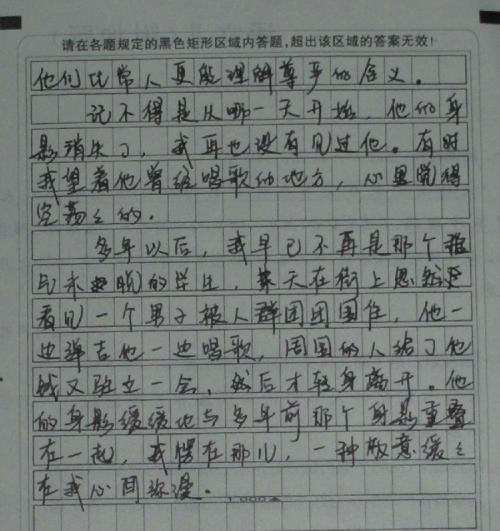 请在各题规定的黑色矩形区域内答题,超出该区域的答案无效!
他们比常人更能理解尊严的含义。
记不得是从哪一天开始,他的身
影消失了,我再也没有见过他。有时
我望着他曾经唱歌的地方,心里觉得
空荡々的.
多年以后,我早已不再是那个
的学生,某天在街上忽然
看见一个男子被人群团团围住,他一
边弹吉他一边唱歌,周围的人给了他
钱又驻立一会,然后才转身离开。他
的身影缓缓地与多年前那个身影重叠
在一起,我愣在那儿,一种敬意缓々
在我心间弥漫。
1000